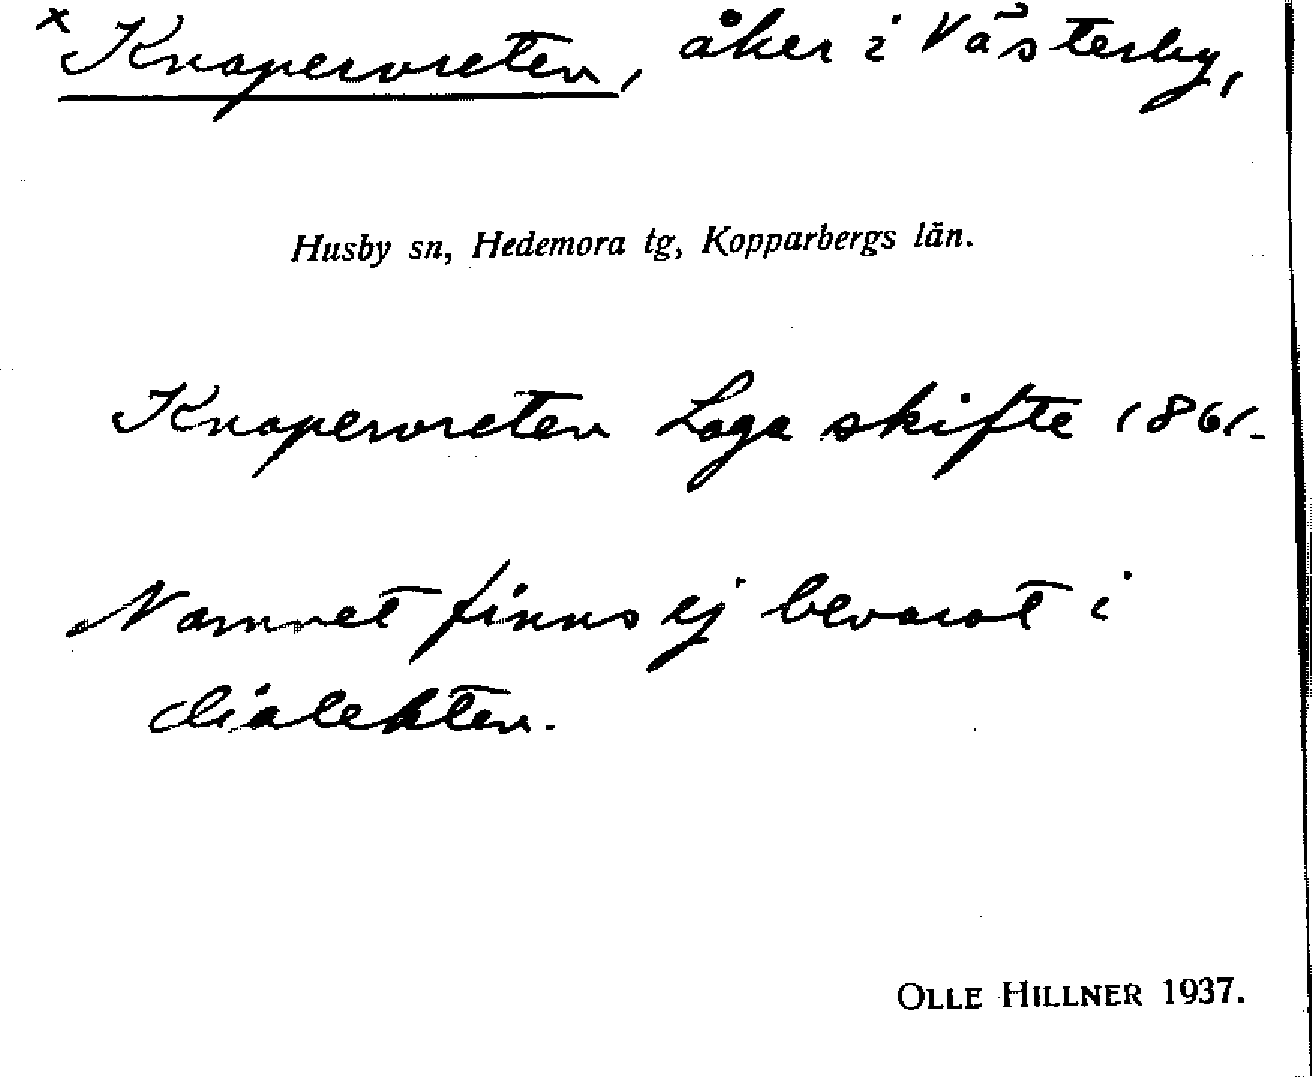 x Knapervreten, åker i Västerby,
Husby sn, Hedemora tg, Kopparbergs län.
Knapervreten Laga skifte 1861.
Namnet finns ej bevarat i
dialekten.
OLLE HILLNER 1937.